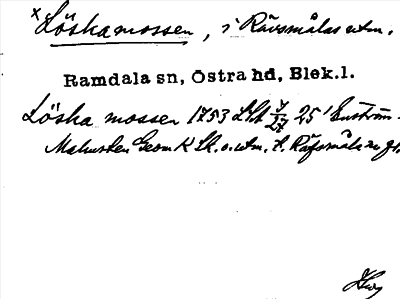 x Löshamossen, i Rävsmålas utm.
Ramdala sn, Östra hd, Blek.l.
Lösha mossen 1753 LSA 25 Enström
Malmsten Geom K o. utm. t. Räfsmåla